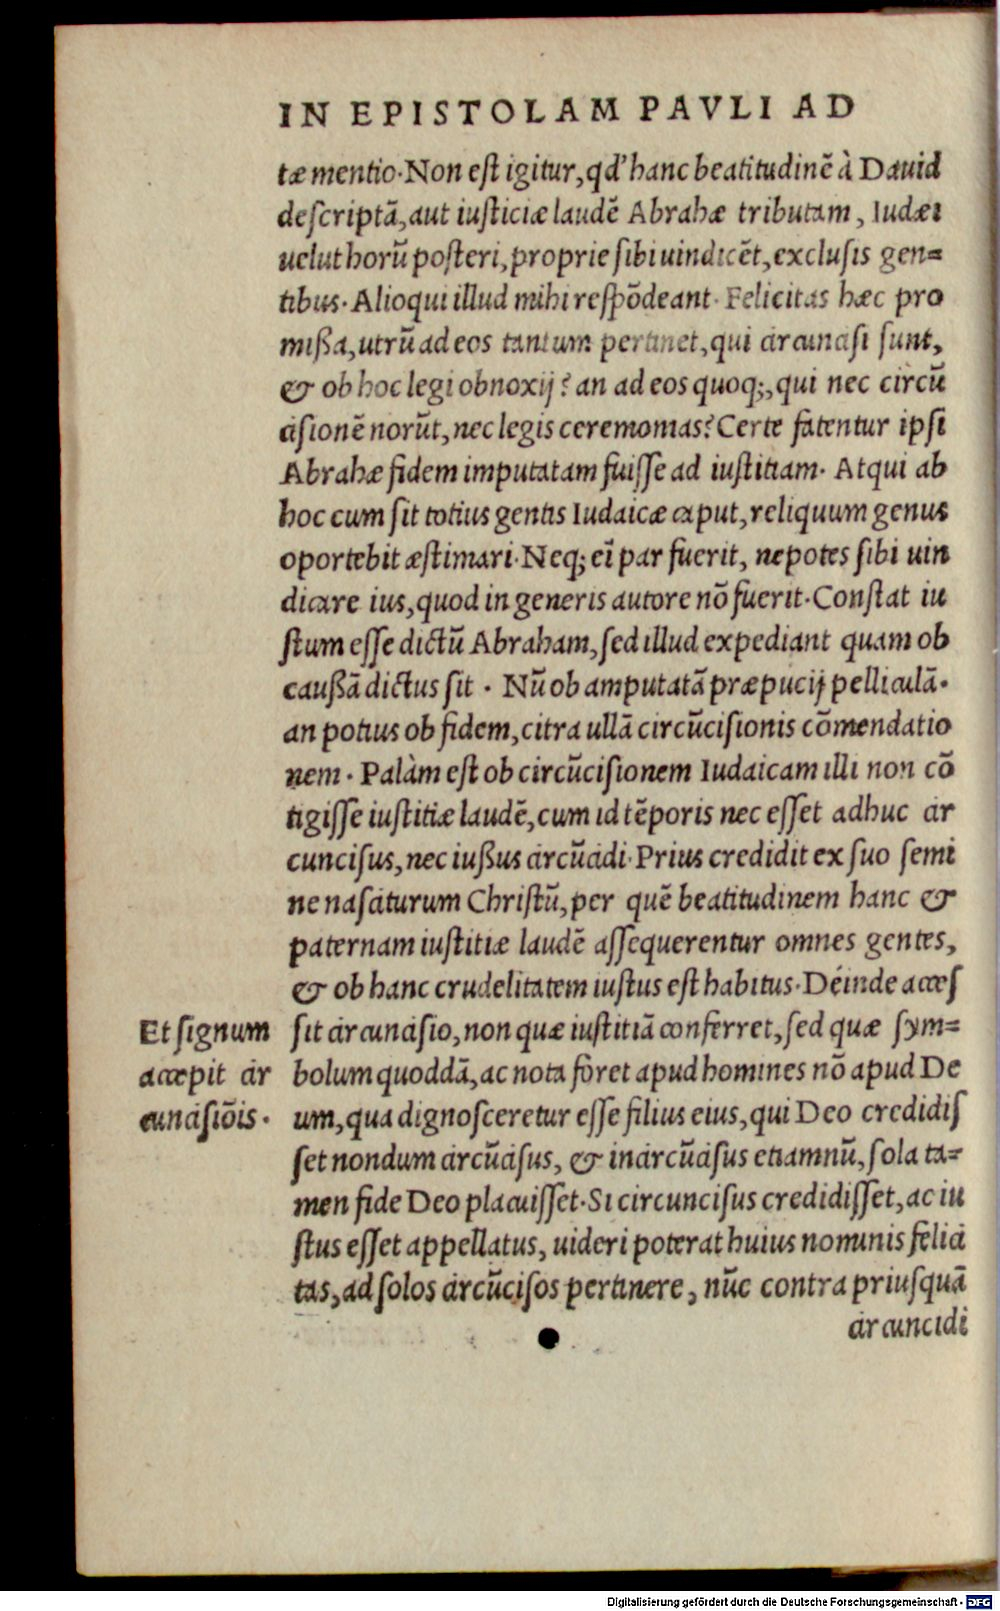 IN EPISTOLAM PAVLI AD
tæ mentio. Non est igitur, qd' hanc beatitudinē à Dauid
descriptā, aut iusticiæ laudē Abrahæ tributam, Iudæi
uelut horū posteri, proprie sibi uindicēt, exclusis gen=
tibus. Alioqui illud mihi respōdeant. Felicitas hæc pro
missa, utrū ad eos tantum pertinet, qui circuncisi sunt,
& ob hoc legi obnoxij? an ad eos quoq;, qui nec circū
cisionē norūt, nec legis ceremonias? Certe fatentur ipsi
Abrahæ fidem imputatam fuisse ad iustitiam. Atqui ab
hoc cum sit totius gentis Iudaicæ caput, reliquum genus
oportebit æstimari. Neq; ei̅ par fuerit, nepotes sibi uin
dicare ius, quod in generis autore nō fuerit. Constat iu
stum esse dictū Abraham, sed illud expediant quam ob
caussā dictus sit. Nū ob amputatā præpucij pelliculā.
an potius ob fidem, citra ullā circūcisionis cōmendatio
nem. Palàm est ob circūcisionem Iudaicam illi non cō
tigisse iustitiæ laudē, cum id tēporis nec esset adhuc cir
cuncisus, nec iussus circūcidi. Prius credidit ex suo semi
ne nasciturum Christū, per quē beatitudinem hanc &
paternam iustitiæ laudē assequerentur omnes gentes,
& ob hanc crudelitatem iustus est habitus. Déinde acces
sit circuncisio, non quæ iustitiā conferret, sed quæ sym=
bolum quoddā, ac nota foret apud homines nō apud De
um, qua dignosceretur esse filius eius, qui Deo credidis
set nondum circūcisus, & incircūcisus etiamnū, sola ta=
men fide Deo placuisset. Si circuncisus credidisset, ac iu
stus esset appellatus, uideri poterat huius nominis felici
tas, ad solos circūcisos pertinere, nūc contra priusquā
circuncidi
Et signum
accepit cir
cuncisiōis.
Digitalisierung gefördert durch die Deutsche Forschungsgemeinschaft - DFG